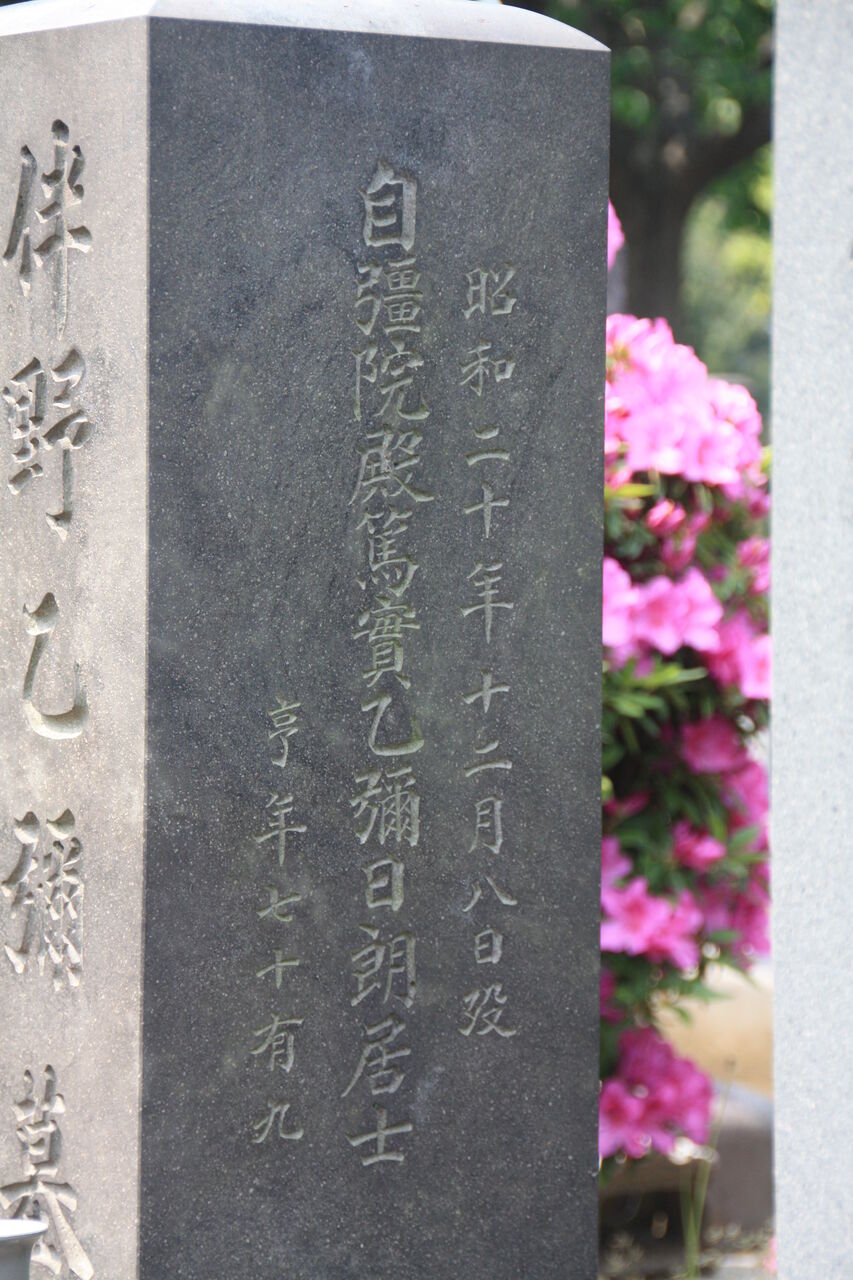 昭和二十年十二月八日歿
自彊院殿篤實乙彌日朗居士
亨年七十有九
伴野乙彌墓